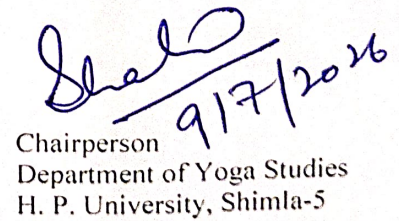 9/7/2026
Chairperson
Department of Yoga Studies
H. P. University, Shimla-5